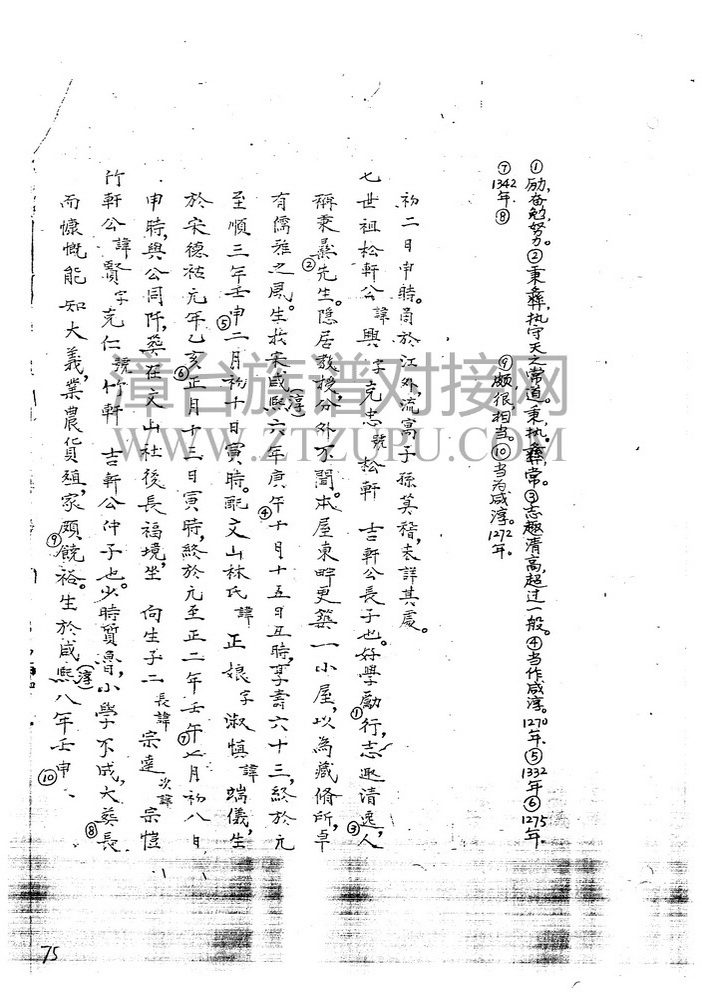 ①励,奋勉,努力。②秉彝,执守天之常道。秉,执。彝,常。③志趣清高,超过一般。④当作咸淳。1270年。⑤1332年⑥1275年。
⑦1342年。⑧ ⑨颇很相当。⑩当为咸淳。1272年。
初二日申時。尚於江外,流寓子孫莫稽,表詳其處。
七世祖松軒公諱興字克忠號松軒 吉軒公長子也。好學勵①行,志趣清逸③,人
稱秉彝②先生。隱居教授,分外不聞。本屋東畔更築一小屋,以為藏脩所,卓
有儒雅之風。生於宋咸熙(淳)六年庚午④十月十五日丑時,享壽六十三,終於元
至順三年壬申⑤二月初十日寅時。配文山林氏諱正娘字淑慎諱端儀,生
於宋德祐元年乙亥⑥正月十三日寅時,終於元至正二年壬午⑦七月初八日
申時,與公同阡,葬在文山社後長福境,坐 向 生子二長諱宗達次諱宗愷
竹軒公諱賢字克仁號竹軒 吉軒公仲子也。少時質魯,小學不成,大葵⑧長
而慷慨能知大義,業農貨殖,家頗⑨饒裕。生於咸熙(淳)八年壬申⑩
75
漳台族谱对接网
WWW.ZTZUPU.COM